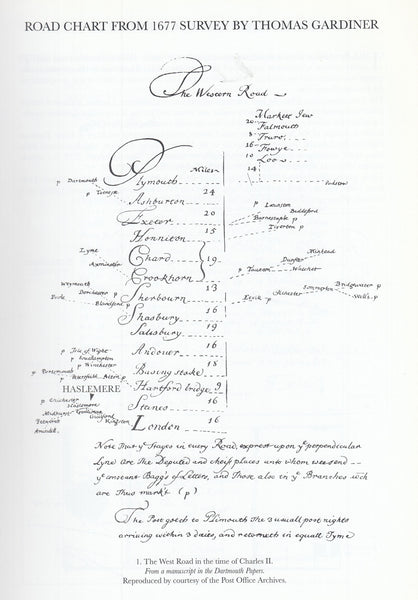 ROAD CHART FROM 1677 SURVEY BY THOMAS GARDINER
The Western Road
Markett Jew
20 Falmouth
8 Truro
16 Fowye
10 Loo
14
Miles
Plymouth
Dartmouth
Ashburton 24
Exeter 20
Launston
Biddeford
Barnestaple
Tiverton p
Honniton 15
Lyme
Chard
Axminster
Crookhorn
19
Minhead
Dunster
p Taunton Watchet
Weymouth
Dorchester p
Poole
Blandford
Sherbourn 13
Bridgwater p
Somerton
Wells
Shasbury 16
Salisbury 19
Andover 16
p Isle of Wight
p Southampton
p Winchester
p Portsmouth
p Petersfield Alton p
Basing stoke 18
HASLEMERE
Hartford bridge 9
p Chichester
Haslemere
Midhurst Godliman
Petworth Guilford
Arundell Kingston
Stanes 16
London 16
Note That ye Stages in every Road, express upon ye perpendicular
Lyne are The Deputed and cheife places unto whom wee send
ye constant Bagg's of Letters, and Those also in ye Branches wch
are Thus markt (p)
The Post goeth to Plimouth The 3 usuall post nights
arriving within 3 daies, and retorneth in equall Tyme
1. The West Road in the time of Charles II.
From a manuscript in the Dartmouth Papers.
Reproduced by courtesy of the Post Office Archives.